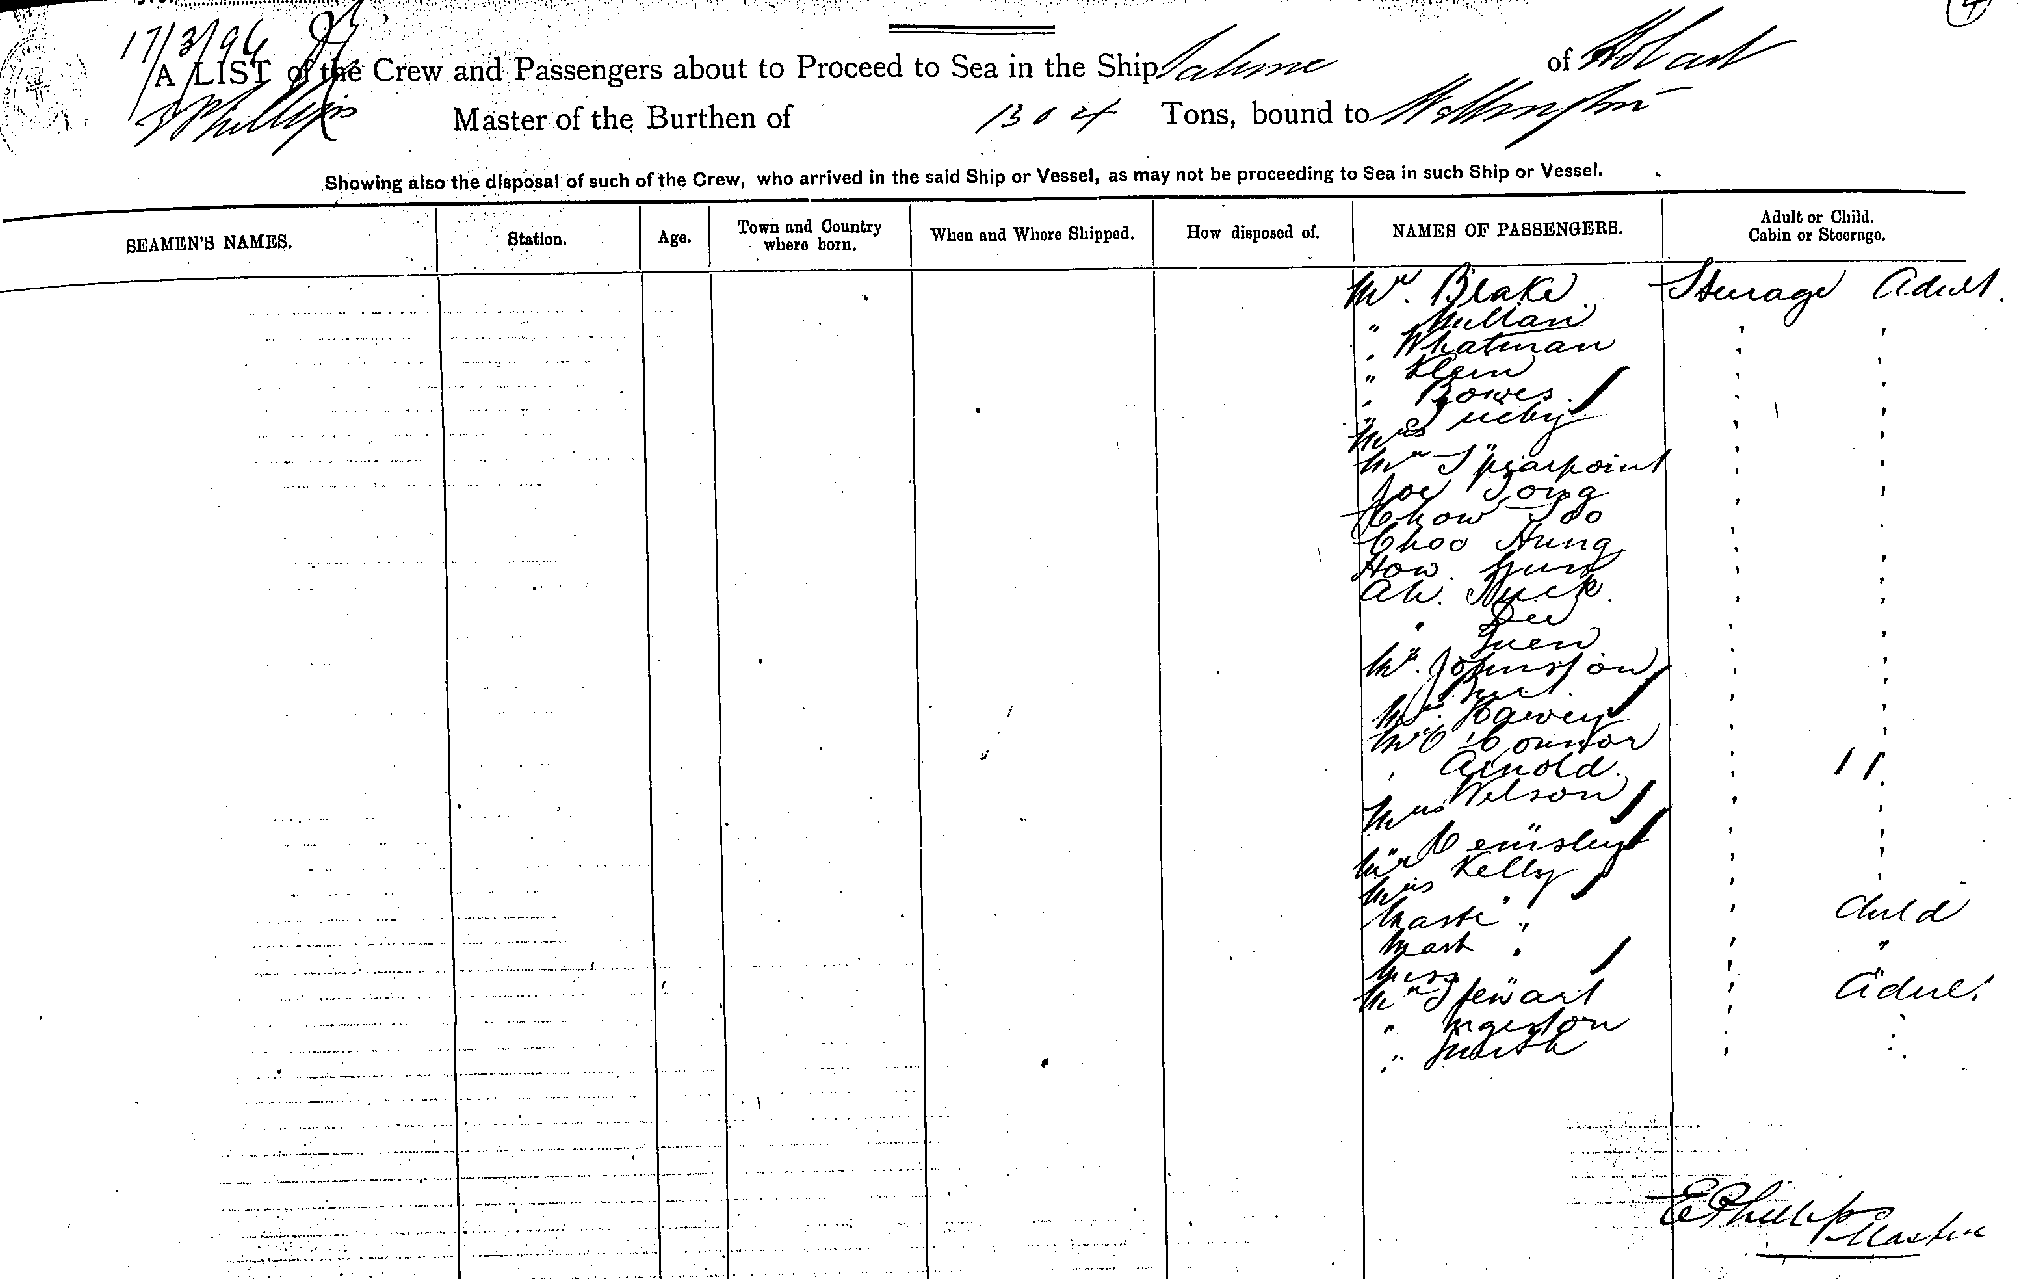 17/3/96
A LIST of the Crew and Passengers about to Proceed to Sea in the Ship of Hobart
Phillips Master of the Burthen of 1304 Tons, bound to Wellington
Showing also the disposal of such of the Crew, who arrived in the said Ship or Vessel, as may not be proceeding to Sea in such Ship or Vessel.
SEAMEN'S NAMES. Station. Age. Town and Country where born. When and Where Shipped. How disposed of. NAMES OF PASSENGERS. Adult or Child. Cabin or Steerage.
Mr. Blake Steerage Adult.
" Mullan " "
" Whatman " "
" Klein " "
" Bowes " "
Mrs
Mr Spearpoint " "
Joe Tong " "
Chow Too " "
Choo Hung " "
How " "
Ah. " "
" Lee " "
" Quen " "
Mr. Johnston " "
Mrs. " "
Mr O'Connor " "
" Arnold. " "
Mrs Wilson " "
Mr Kelly " "
Mrs " " "
Mast " " Child
Mast " " "
Miss
Mr Stewart " Adult
"
" Smith " "
E Phillips Master